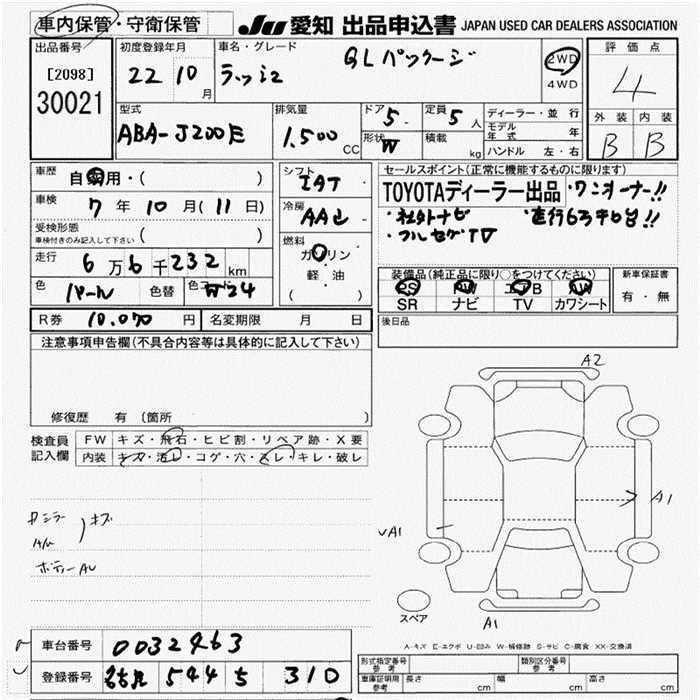 車内保管・守衛保管
JU 愛知 出品申込書 JAPAN USED CAR DEALERS ASSOCIATION
出品番号
[2098]
30021
初度登録年月
22 10 月
車名・グレード
ラッシュ
GLパッケージ
2WD
4WD
評価点
4
外装 内装
B B
型式
ABA-J200E
排気量
1.500 CC
ドア 5
形状 W
定員 5 人
積載 kg
ディーラー・並行
モデル年式 年
ハンドル 左・右
車歴
自 用・( )
車検
7 年 10 月 (11 日)
受検形態
車検付きのみ記入して下さい ( )
走行
6 万 6 千 232 km
色 パール 色替 色コード W24
シフト
IAT
冷房
AAC
燃料
ガソリン
軽・油
( )
セールスポイント(正常に機能するものに限ります)
TOYOTAディーラー出品 ・ワンオーナー!!
・社外ナビ ・走行6万キロ台!!
・フルセグTV
装備品(純正品に限り○をつけてください)
PS PW エアB AW
SR ナビ TV カワシート
新車保証書
有・無
R券 10.070 円 名変期限 月 日
後日品
注意事項申告欄(不具合内容等は具体的に記入して下さい)
修復歴 有 (箇所 )
検査員
記入欄
FW キズ・飛石・ヒビ割・リペア跡・X要
内装 キズ・汚レ・コゲ・穴・スレ・キレ・破レ
キズ
ボディーAU
A2
A1
√A1
A1
スペア
A-キズ E-エクボ U-凹み W-補修跡 S-サビ C-腐食 XX-交換済
車台番号 0032463
登録番号 名古屋 544 ち 310
形式指定番号
参考
類別区分番号
参考
車庫証明用
参考
長さ cm 幅 cm 高さ cm